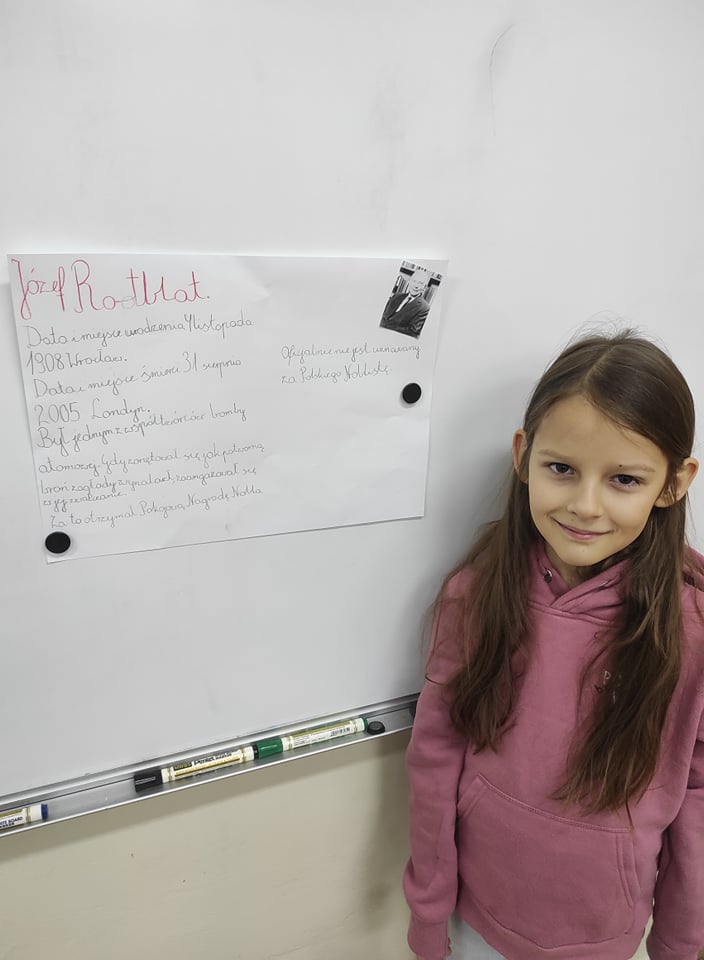 Józef Rootblat.
Data i miejsce urodzenia 4 listopada
1908 Wrocław.
Data i miejsce śmierci 31 sierpnia
2005 Londyn.
Był jednym z współtwórców bomby
atomowej. Gdy zorientował się jak potworną
broń zagłady wymalazł, zaangażował się
w jej zwalczanie.
Za to otrzymał Pokojową Nagrodę Nobla
Oficjalnie nie jest uznawany
za Polskiego Noblistę.